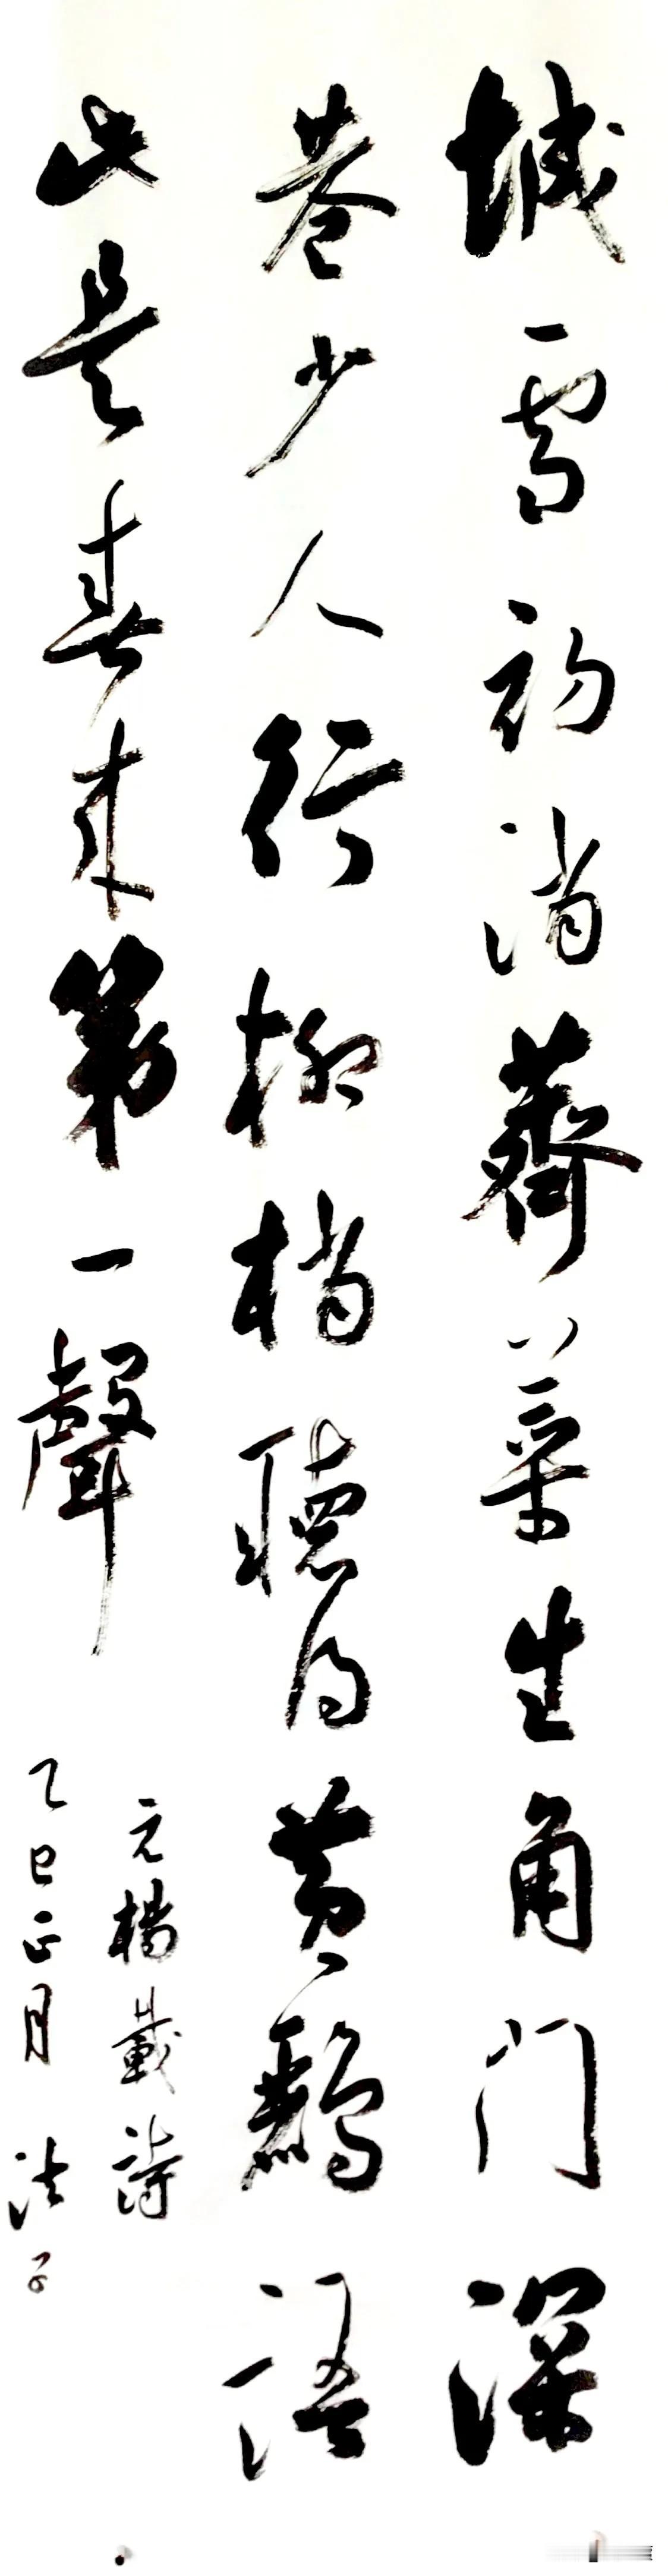 城雪初消薺菜生角门深
巷少人行柳梢聴得黄鸝語
此是春来第一聲
元楊載詩
乙巳正月法子